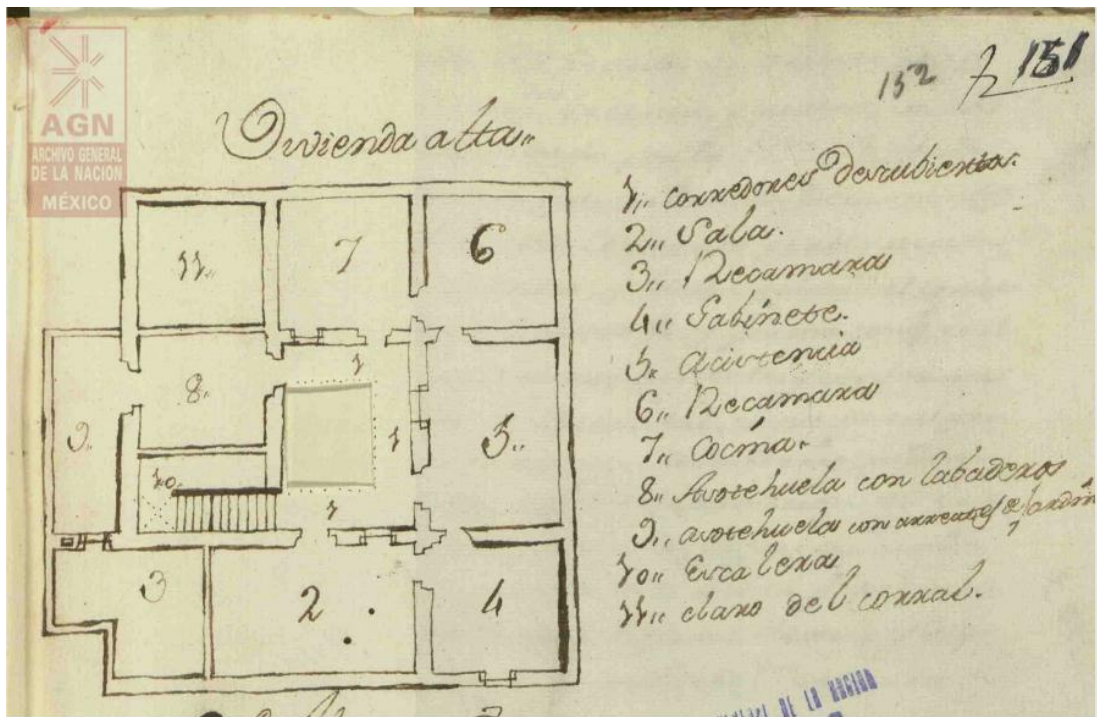 152 7 151
AGN
ARCHIVO GENERAL
DE LA NACION
MÉXICO
Vivienda alta„
1„ corredores Descubiertos.
2„ Sala.
3„ Recamara
4„ Gabinete.
5„ Acistencia
6„ Recamara
7„ Cocina.
8„ Asotehuela con labaderos
9„ asotehuela con arreates de Jardin
10„ Escalera
11„ claro del corral.
11„
7
6
8„
1
9„
1
5„
10„
1
3
2
4
DE LA NACION